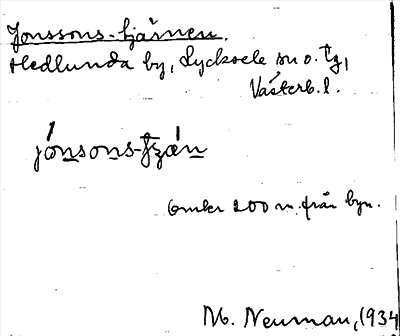 Jonssons-tjärnen.
Hedlunda by, Lycksele sn o. tg,
Västerb. l.
jónsons-tjæ̀n
Omkr 200 m. från byn.
M. Neuman, 1934